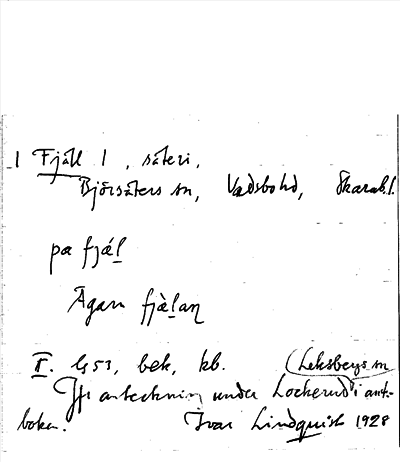 1 Fjäll 1, säteri,
Björsäters sn, Vadsbo hd, Skarab. l.
pa fjä́l
Ägarn fjä̀lan
I. G53, bek, kb. (Leksbergs sn
Jfr anteckning under Lockerud i ant.-
boken. Ivar Lindquist 1928